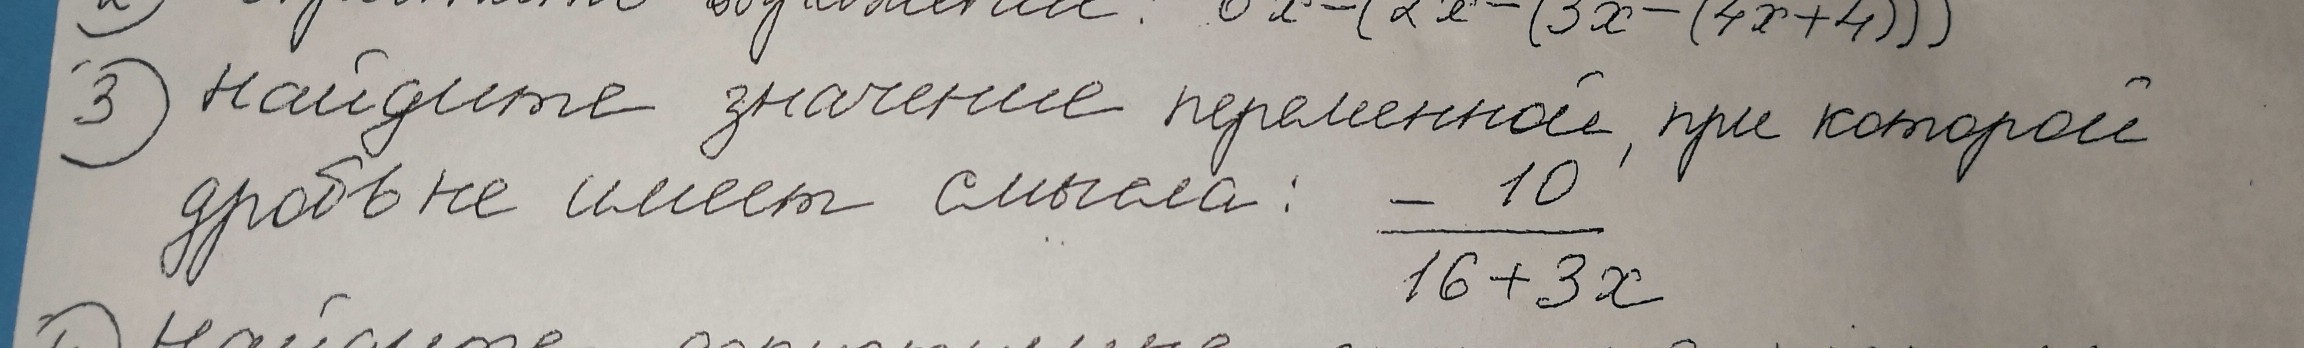 2) выражение: 6x-(2x-(3x-(4x+4)))
3) Найдите значение переменной, при которой
дробь не имеет смысла: -10/(16+3x)
Найдите